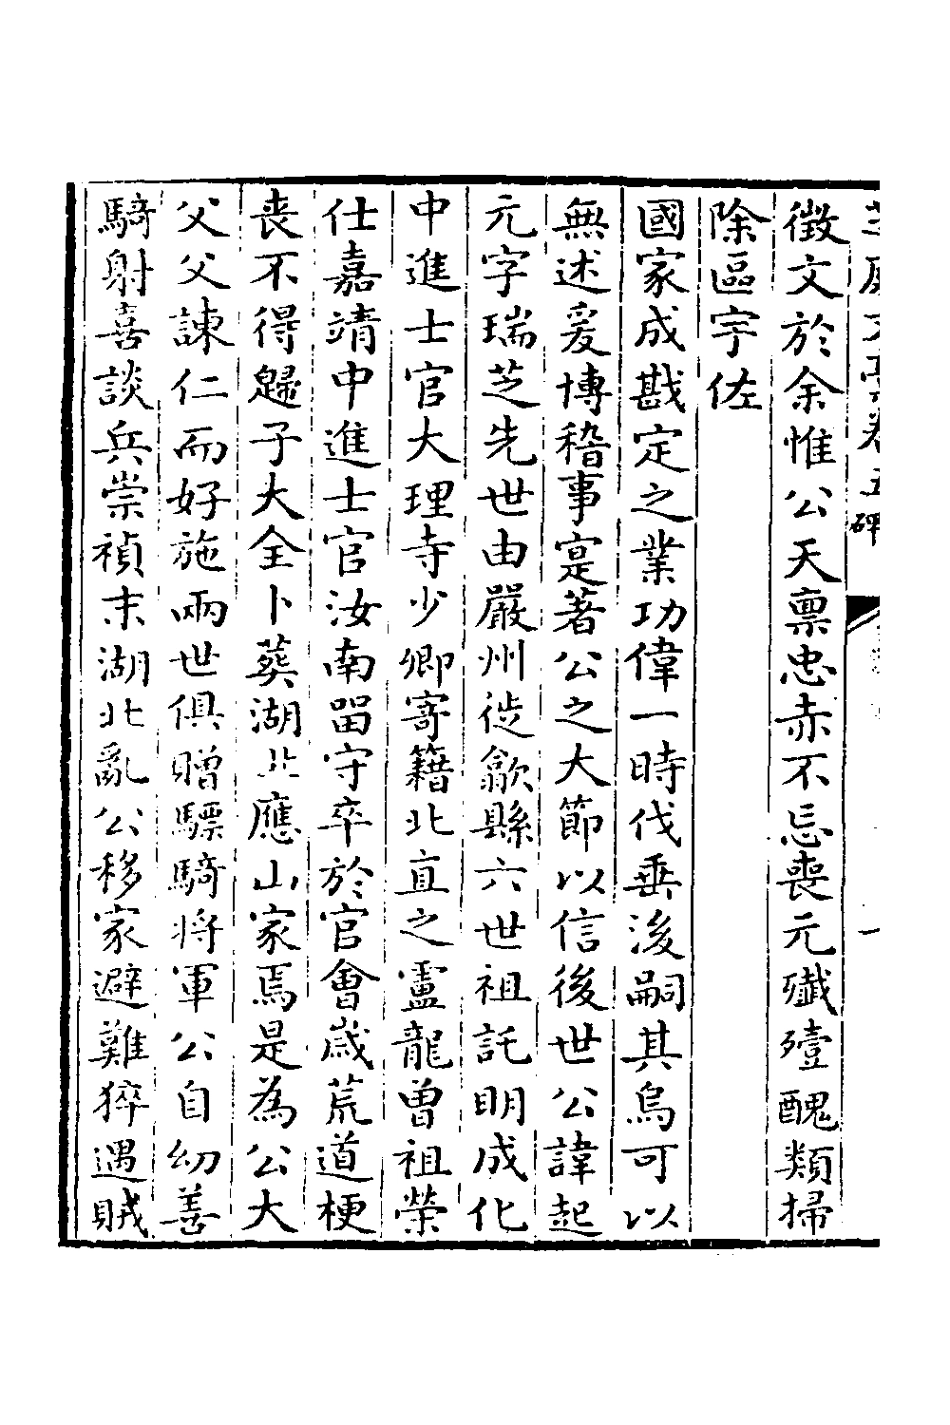 卷五 碑
徵文於余惟公天禀忠赤不忘喪元殲殪醜類掃
除區宇佐
國家成戡定之業功偉一時代垂後嗣其烏可以
無述爰博稽事寔著公之大節以信後世公諱起
元字瑞芝先世由嚴州徙歙縣六世祖託明成化
中進士官大理寺少卿寄籍北直之盧龍曾祖榮
仕嘉靖中進士官汝南留守卒於官會歲荒道梗
喪不得歸子大全卜葬湖北應山家焉是為公大
父父諫仁而好施兩世俱贈驃騎將軍公自幼善
騎射喜談兵崇禎末湖北亂公移家避難猝遇賊